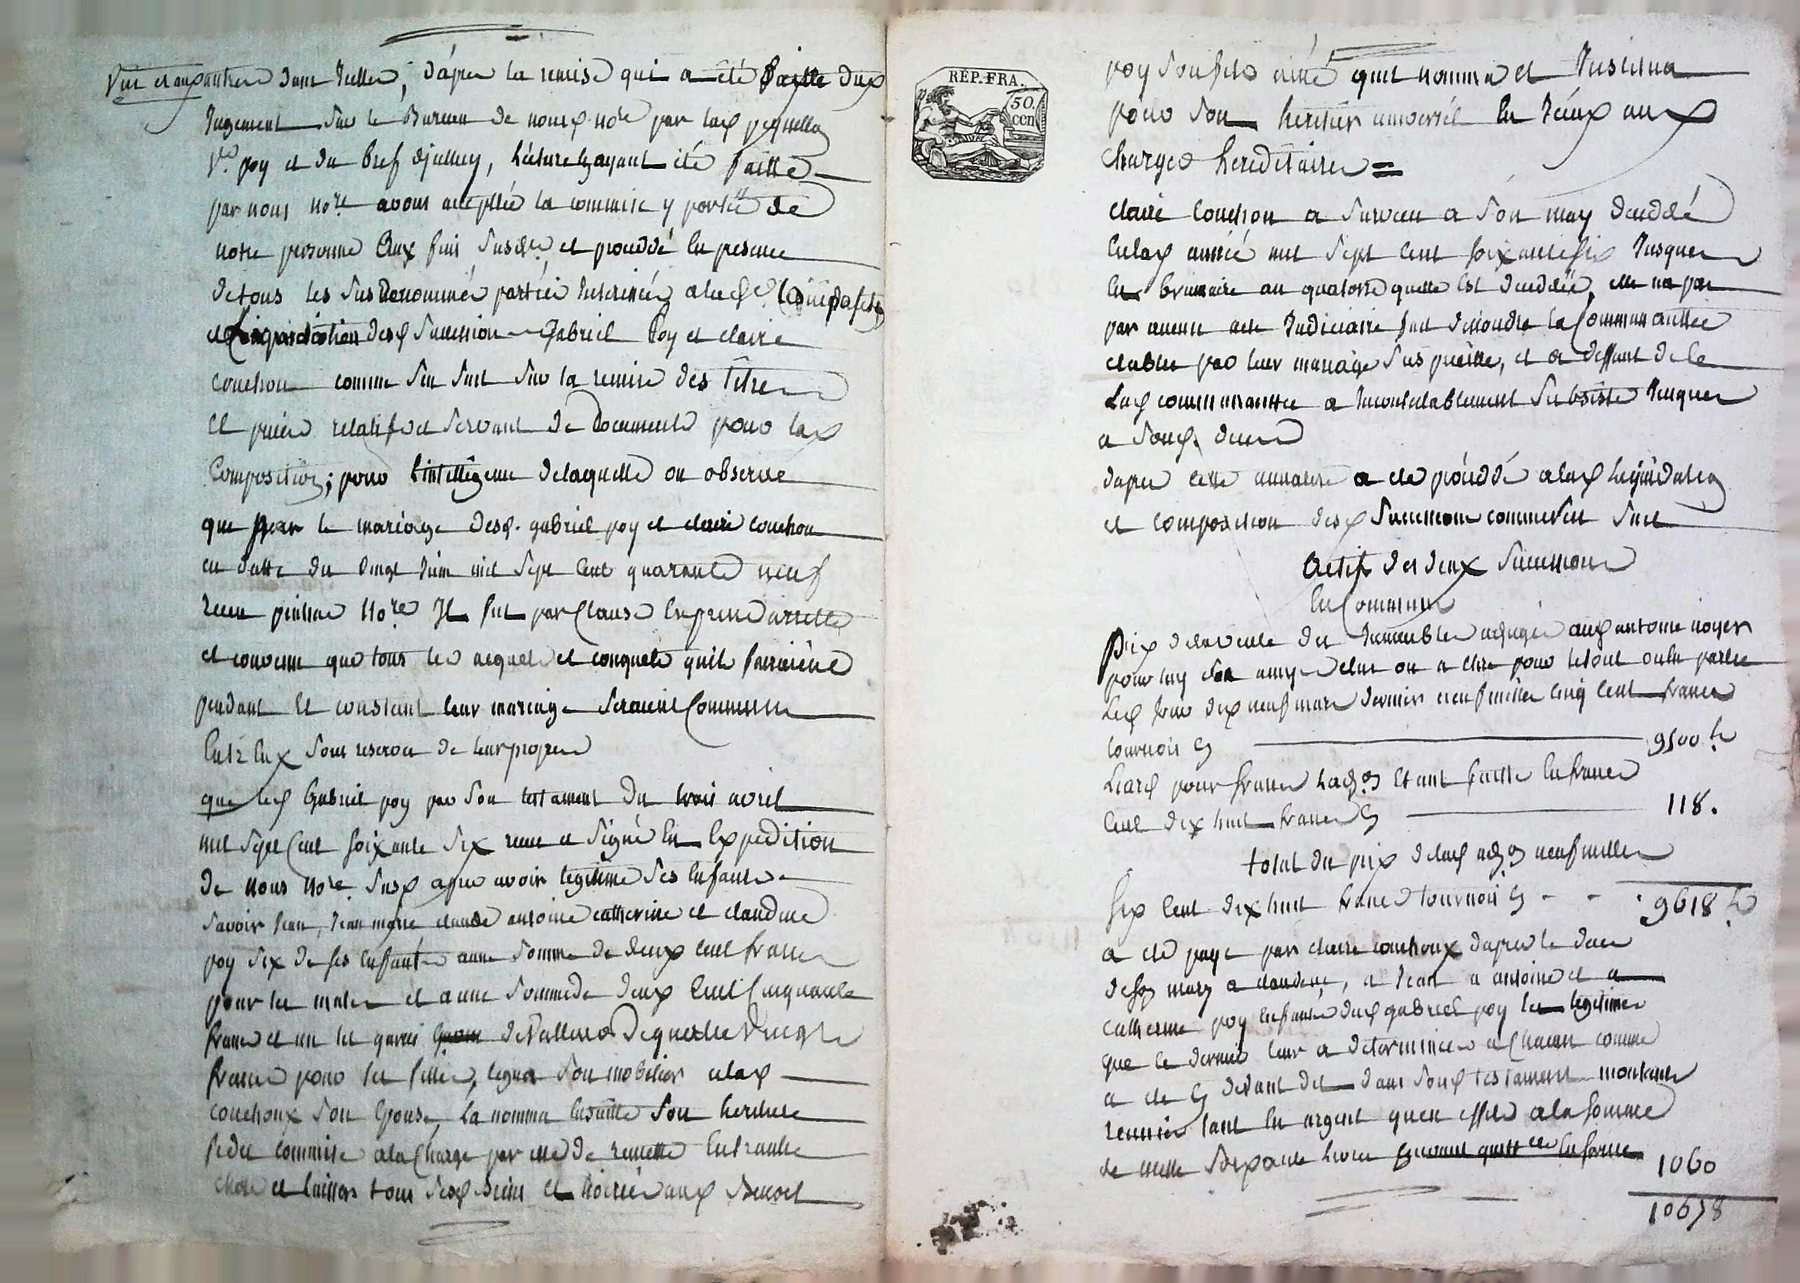 vue et aux autres dans icelles, d'après la remise qui a été faitte dud
Jugement sur le Bureau de nousd. nore. par lad. petitte
Ve. poy et du bref d'jceluy, lecture ayant été faitte
par nous nore. avons acceptée la commise y portée de
notre personne aux fins susd. et procédé en presence
de tous les susdenommés partiés interessées à lad.
et Liquidation desd. succession Gabriel Poy et claire
couchou comme sen suit sur la remise des titres
et pièces relatifs et servant de documents pour lad.
Composition; pour l'intelligence delaquelle on observe
que par le mariage desd. gabriel poy et claire couchou
en datte du vingt Juin mil sept cent quarante neuf
recu nore. Il fut par clause expresse arretté
et convenu que tous les acquets et conquets quils fairoient
pendant et constant leur mariage seroient Communs
entr'eux sous reserve de leur propres
que led. Gabriel poy par son testament du trois avril
mil sept cent soixante six recu et signé en Expedition
de nous nore. susd. apres avoir legitimé ses enfants
savoir Jean, Jean marie claude antoine catherine et claudine
poy six de ses enfants a une somme de deux cent francs
pour les males et a une somme de deux cent cinquante
francs et un lit garni de valleur de quatre vingt
francs pour les filles, legua son mobilier a lad.
couchoux son epouse, la nomma ensuitte son heritiere
fidei commise à la charge par elle de remettre
et laisser tous sesd. biens et hoirie aud. Benoit
REP. FRA.
50. cen
poy son fils ainé quil nomma et Institua
pour son heritier universel en iceux aux
charges hereditaires =
claire couchou a survecu a son mary decedé
en lad. année mil sept cent soixante six Jusques
en brumaire an quatorze quelle est decedée, elle na par
par aucun acte Judiciaire fait dissoudre la Communauttée
etablie par leur mariage sus précitté, et a deffaut de ce
lad. communauttée a incontestablement subsisté Jusques
a sond. deces
dapres cette a été procédé a lad. Liquidation
et composition desd. succession comme s'en suit
Actif des deux successions
en Commun
Prix de la vente des Immeubles adjugés aud. antoine noyer
pour luy son amy elut ou a elire pour le tout ou en partie
led. Jour dix neuf mars dernier neuf mille cinq cent francs
tournois 9500 #
Lead. pour frais etant faitte en francs
cent dix huit francs 118.
total du prix de lad. neuf mille
six cent dix huit francs tournois - - 9618 #
a été payé par claire couchoux dapres le deces
de son mary a claudine, a Jean a antoine et a
catherine poy enfants dud. gabriel poy les legitimes
que ce dernier leur a determinées a chacun comme
a été devant dit dans sond. testament montants
reunies tant en argent quen effets a la somme
de mille soixante livres 1060
10678